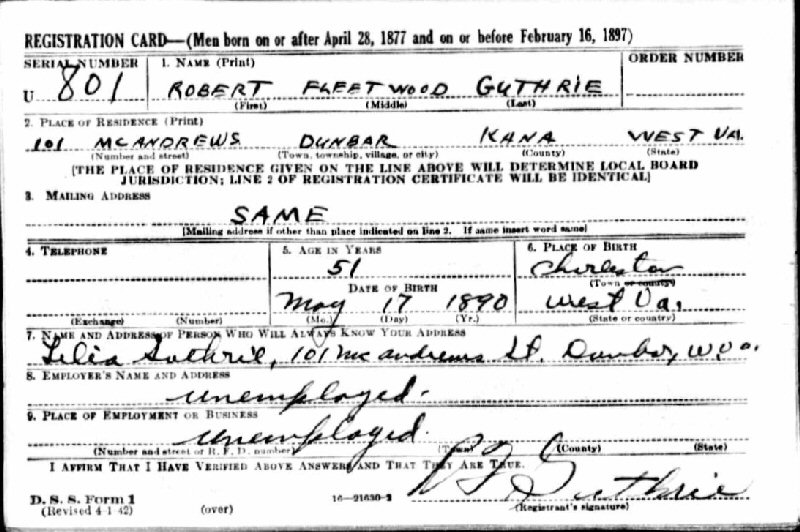 REGISTRATION CARD—(Men born on or after April 28, 1877 and on or before February 16, 1897)
SERIAL NUMBER 1. NAME (Print) ORDER NUMBER
U 801 ROBERT FLEETWOOD GUTHRIE
(First) (Middle) (Last)
2. PLACE OF RESIDENCE (Print)
101 MCANDREWS DUNBAR KANA WEST VA.
(Number and street) (Town, township, village, or city) (County) (State)
[THE PLACE OF RESIDENCE GIVEN ON THE LINE ABOVE WILL DETERMINE LOCAL BOARD
JURISDICTION; LINE 2 OF REGISTRATION CERTIFICATE WILL BE IDENTICAL]
3. MAILING ADDRESS
SAME
[Mailing address if other than place indicated on line 2. If same insert word same]
4. TELEPHONE 5. AGE IN YEARS 6. PLACE OF BIRTH
51 Chirleston
DATE OF BIRTH (Town or county)
May 17 1890 West Va.
(Exchange) (Number) (Mo.) (Day) (Yr.) (State or country)
7. NAME AND ADDRESS OF PERSON WHO WILL ALWAYS KNOW YOUR ADDRESS
Lelia Guthrie, 101 Mc andrews St. Dunbar, W Va.
8. EMPLOYER'S NAME AND ADDRESS
unemployed.
9. PLACE OF EMPLOYMENT OR BUSINESS
unemployed.
(Number and street or R. F. D. number) (Town) (County) (State)
I AFFIRM THAT I HAVE VERIFIED ABOVE ANSWERS AND THAT THEY ARE TRUE.
R F Guthrie
D. S. S. Form 1 16—21630-2 (Registrant's signature)
(Revised 4-1-42) (over)